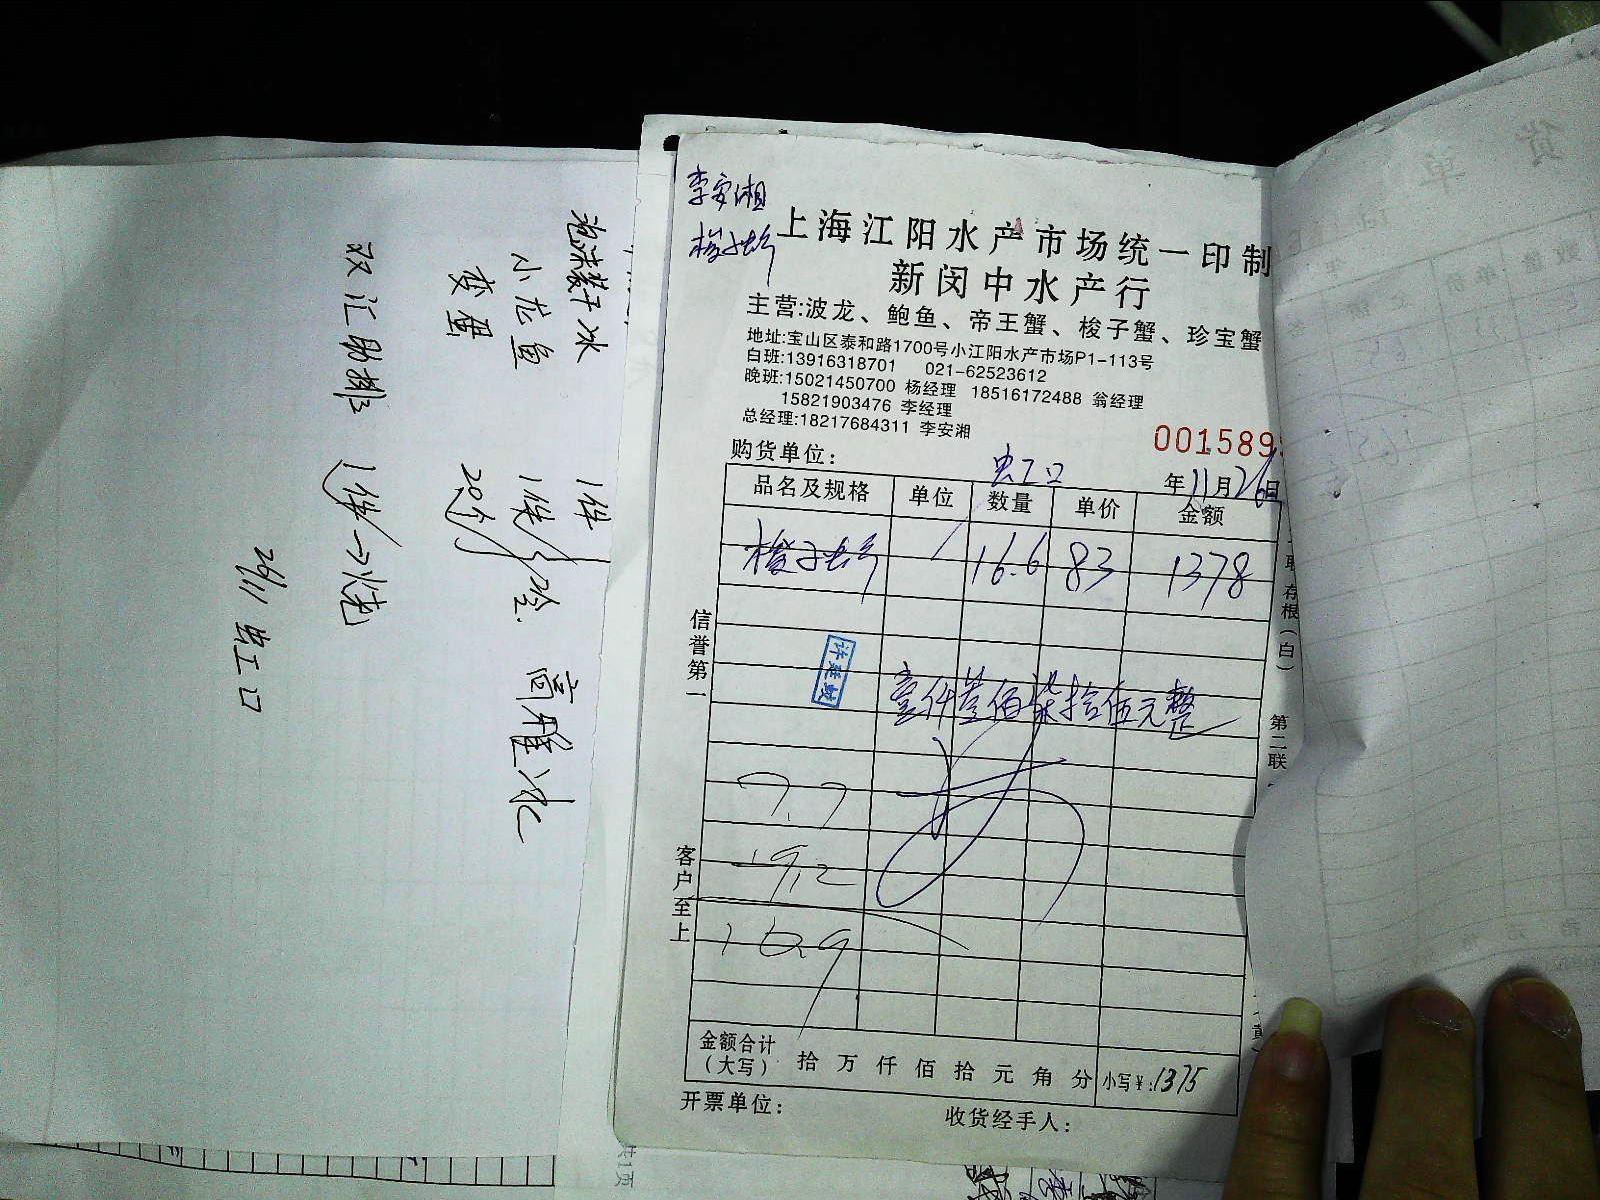 李安湘
梭子蟹
上海江阳水产市场统一印制
新闵中水产行
主营:波龙、鲍鱼、帝王蟹、梭子蟹、珍宝蟹
地址:宝山区泰和路1700号小江阳水产市场P1-113号
白班:13916318701 021-62523612
晚班:15021450700 杨经理 18516172488 翁经理
15821903476 李经理
总经理:18217684311 李安湘
001589
购货单位: 虹口 年11月26日
品名及规格 单位 数量 单价 金额
梭子蟹 16.6 83 1378
壹仟叁佰柒拾伍元整
7.7
9.2
16.9
信誉第一
客户至上
存根(白)
第二联
金额合计
(大写) 拾 万 仟 佰 拾 元 角 分 小写¥:1375
开票单位: 收货经手人:
1件
小花鱼 1件
变蛋 20个
双汇肋排 1件
26/11 虹口
货单
共1页